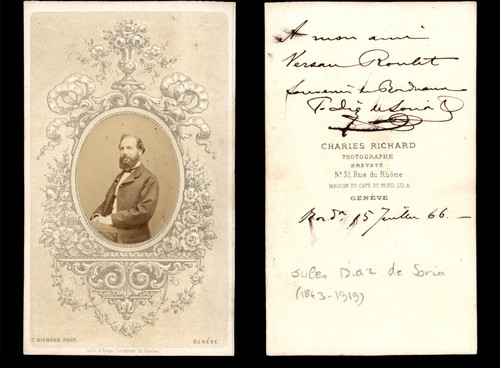 C. RICHARD PHOT.
GENÈVE
A mon ami
Versau Roulet
Souvenir de Bordeaux
CHARLES RICHARD
PHOTOGRAPHE
BREVETÉ
No 31. Rue du Rhône
MAISON DU CAFÉ DU NORD, 172.A
GENÈVE
Bordx 15 Juillet 66.—
Jules Diaz de Soria
(1843-1919)